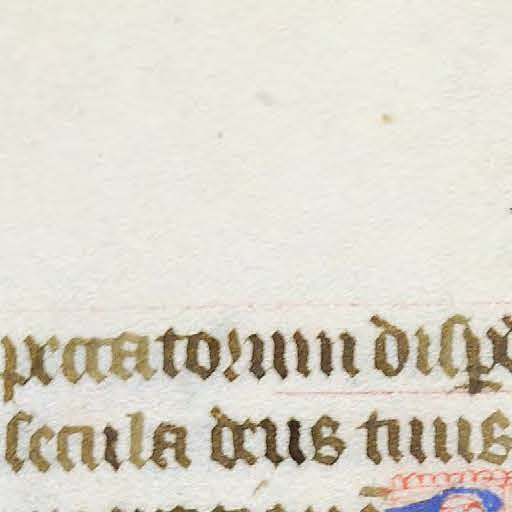 peccatorum disp
secula deus tuus